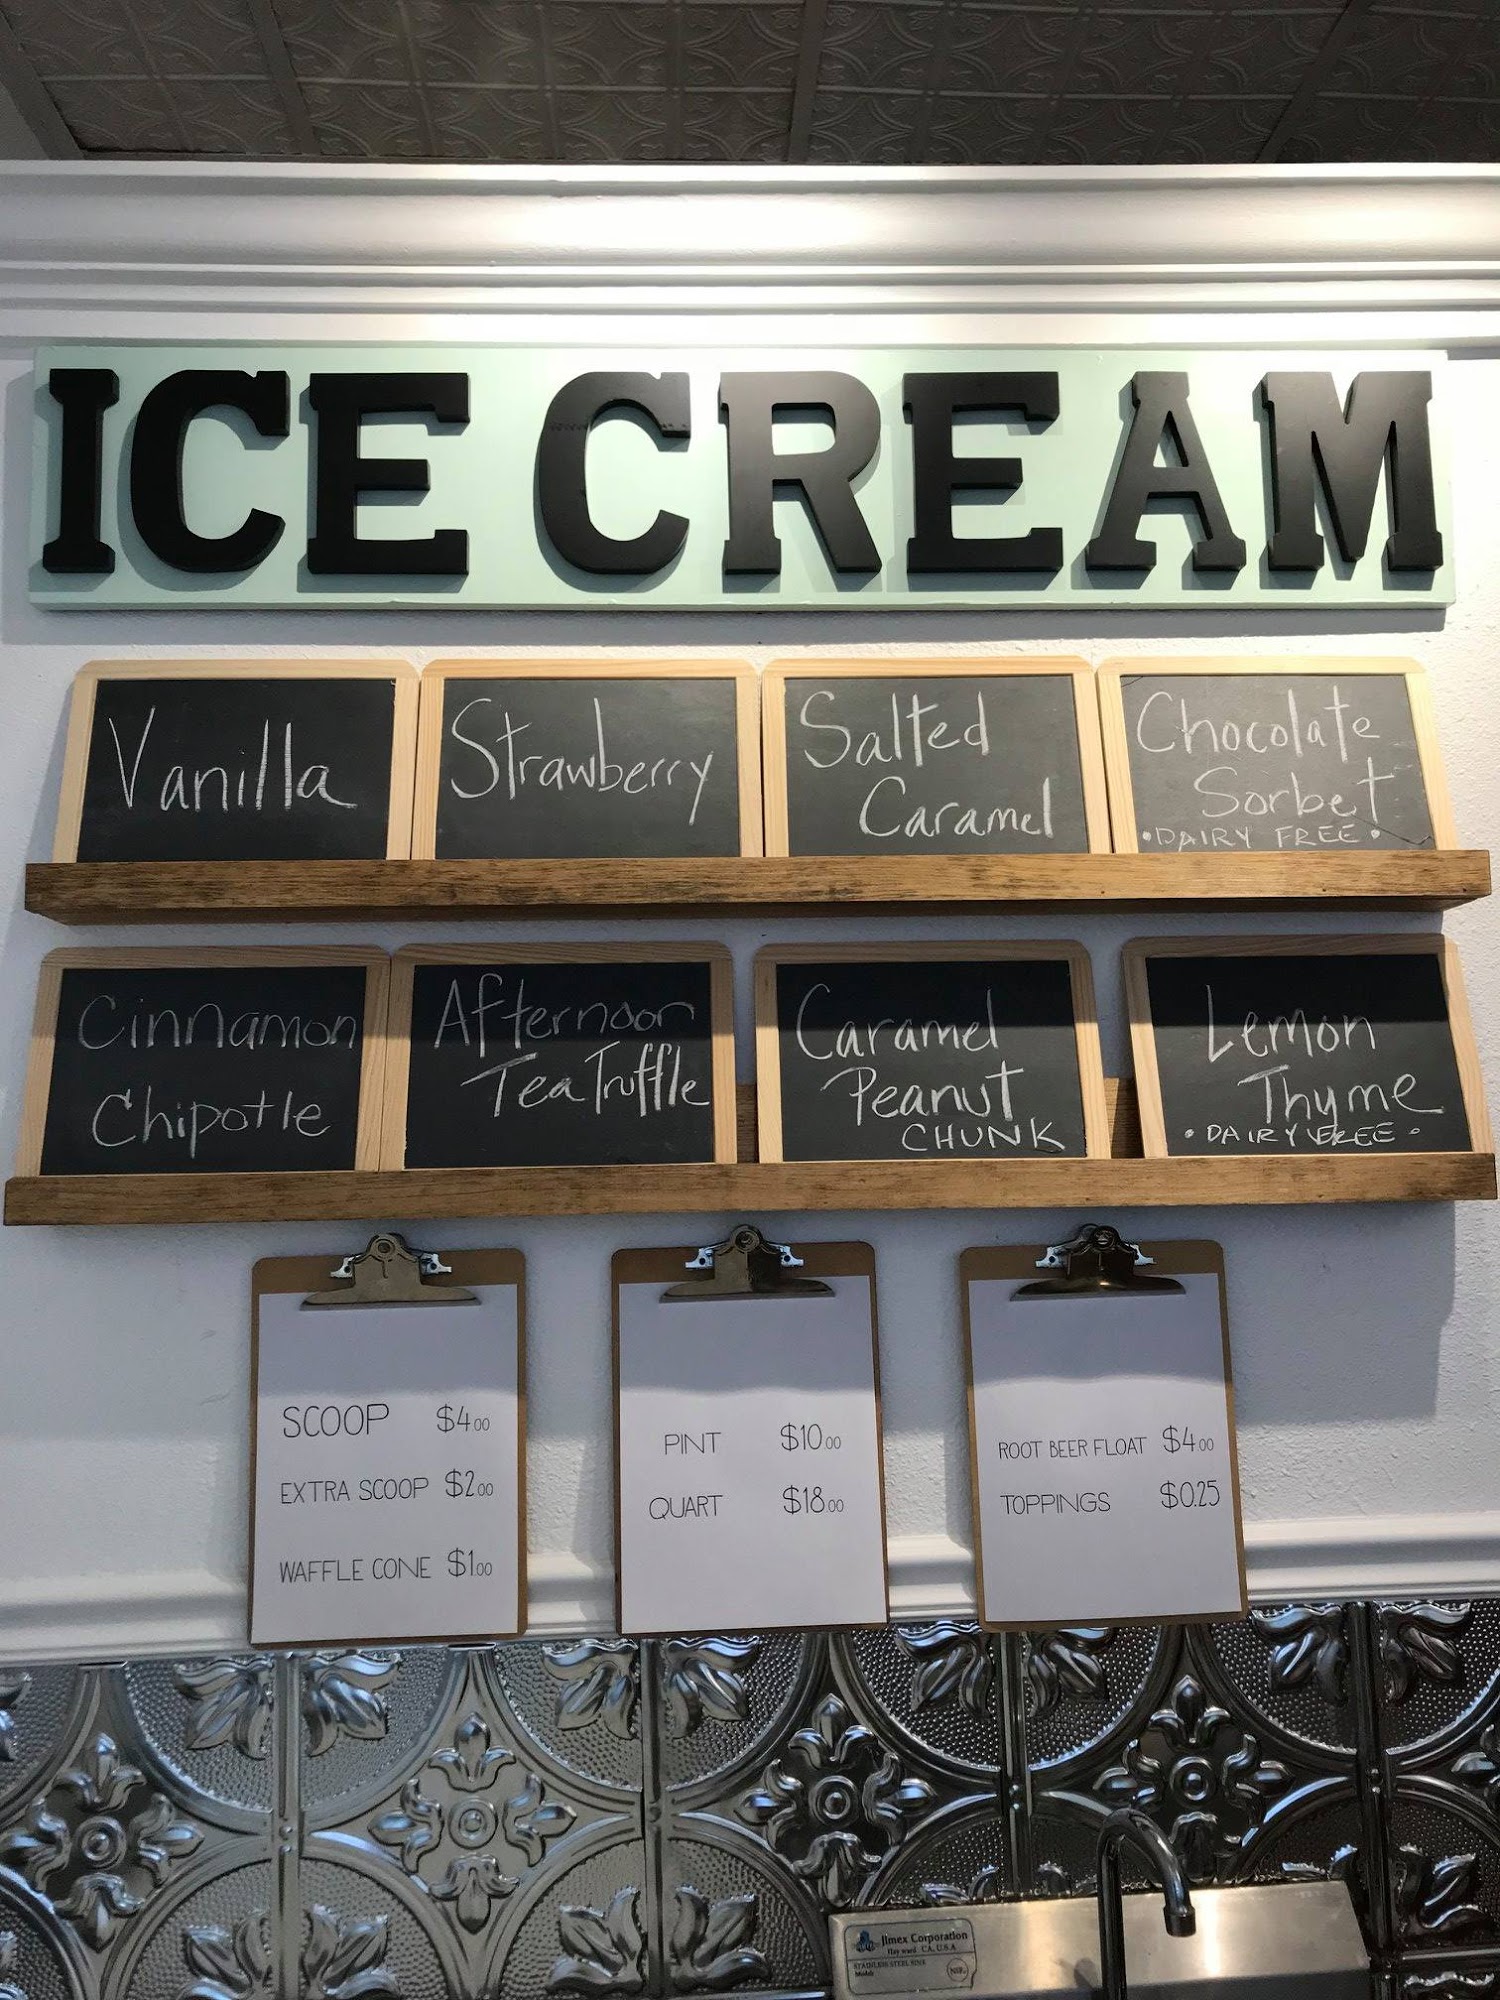 ICE CREAM
Vanilla
Strawberry
Salted
Caramel
Chocolate
Sorbet
• DAIRY FREE •
Cinnamon
Chipotle
Afternoon
Tea Truffle
Caramel
Peanut
CHUNK
Lemon
Thyme
• DAIRY FREE •
SCOOP $4.00
EXTRA SCOOP $2.00
WAFFLE CONE $1.00
PINT $10.00
QUART $18.00
ROOT BEER FLOAT $4.00
TOPPINGS $0.25
Jimex Corporation
Hayward CA, U.S.A
STAINLESS STEEL SINK
NSF